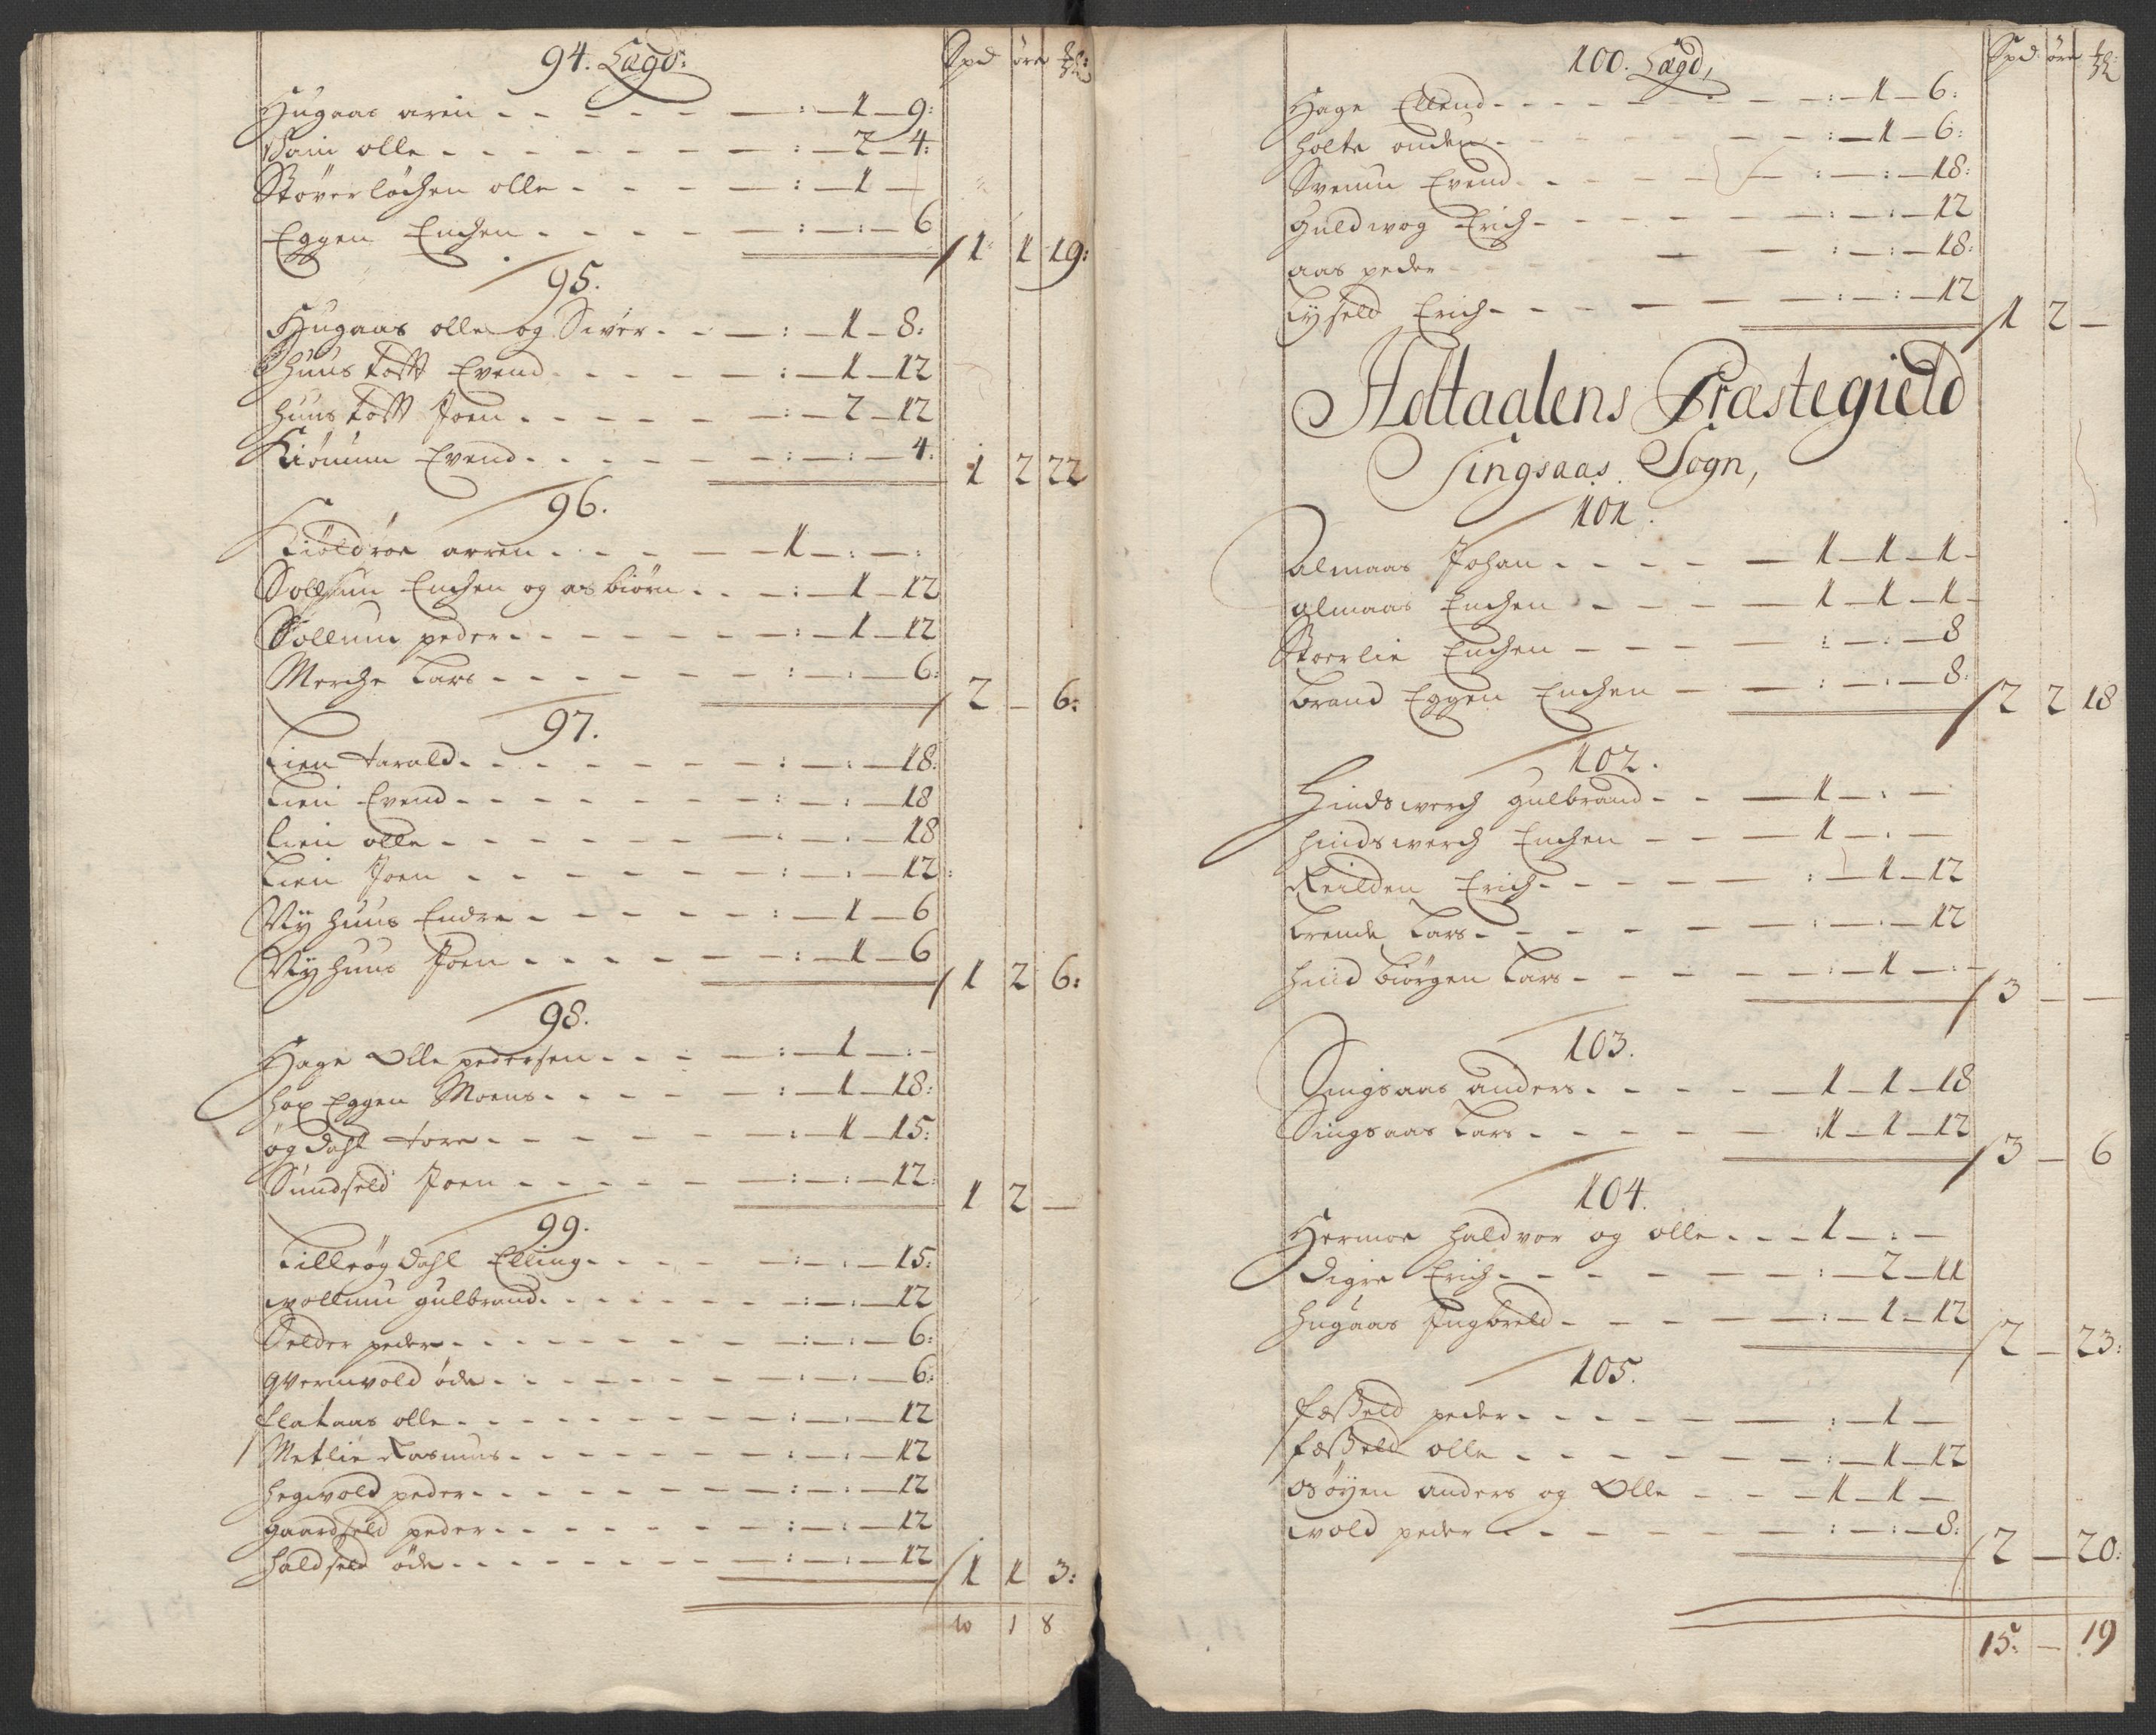 94. Lægd: Spd öre
Hugaas aren - - - - - - : - 1 - 9:
olle - - - - - - - : - 2 - 4:
Störerløchen olle - - - - : - 1 -
Eggen Enchen - - - - : - : - 6
1 1 19:
95.
Hugaas olle og Siver - - - : - 1 - 8:
Huus tofft Evend - - - - : - 1 - 12
huus tofft Joen - - - - - : - 2 - 12
Kiönum Evend - - - - - : - : - 4:
1 2 22
96.
Kiöldröe arren - - - - - 1 - : - :
Enchen og asbiörn - - - : - 1 - 12
Sollum peder - - - - - : - 1 - 12
Merche Lars - - - - - - : - : - 6:
2 - 6:
97.
Lien tarald - - - - - - : - : - 18:
Lien Evend - - - - - - : - : - 18
Lien olle - - - - - - : - : - 18
Lien Joen - - - - - - : - : - 12:
Nÿhuus Endre - - - - - : - 1 - 6
Nÿhuus Joen - - - - - : - 1 - 6
1 2 6:
98.
Hage Olle pedersen - - - - : - 1 - : -
hox Eggen Moens - - - - : - 1 - 18:
øgdahl tore - - - - - : - 1 - 15:
Sundseld Joen - - - - - : - : - 12:
1 2 -
99.
Lilleøgdahl Elling - - - - : - : - 15:
wollum gulbrand - - - - - : - : - 12
Selder peder - - - - - - : - : - 6:
qvernvold öde - - - - - - : - : - 6:
flataas olle - - - - - - : - : - 12
Metlie Rasmus - - - - - - : - : - 12
hegwold peder - - - - - - : - : - 12
gaardseld peder - - - - - - : - : - 12
haldseld öde - - - - - - : - : - 12
1 1 3:
10 1 8
100. Lægd, Spd öre
Hage Ellend - - - - - - : - 1 - 6:
holte - - - - - - : - 1 - 6:
Svenn Evend - - - - - : - : - 18:
Guldwog Erich - - - - - : - : - 12
aas peder - - - - - : - : - 18:
Lyseld Erich - - - - - : - : - 12
1 2 -
Holtaalens Præstegield
Singsaas Sogn,
101.
almaas Johan - - - - - 1 - 1 - 1 -
almaas Enchen - - - - 1 - 1 - 1 -
Stoerlie Enchen - - - - : - : - 8
brand Eggen Enchen - - : - : - 8:
2 2 18
102.
Hindswerch gulbrand - - - 1 - : -
hindswerch Enchen - - - 1 - : -
Reilden Erich - - - - - : - 1 - 12
brende Lars - - - - - : - : - 12
hind biörgen Lars - - - - : - 1 - : -
3 - -
103.
Singsaas anders - - - - 1 - 1 - 18
Singsaas Lars - - - - - :1 - 1 - 12
3 - 6
104.
Hermoe haldvor og olle - - - 1 - : -
digre Erich - - - - - - : - 2 - 11
hugaas Ingbreld - - - - : - 1 - 12
2 - 23:
105.
fosseld peder - - - - - : - 1 -
fosseld olle - - - - - : - 1 - 12
osøÿen anders og Olle - - - 1 - 1 -
wold peder - - - - - : - : - 8:
2 - 20:
15: - 19